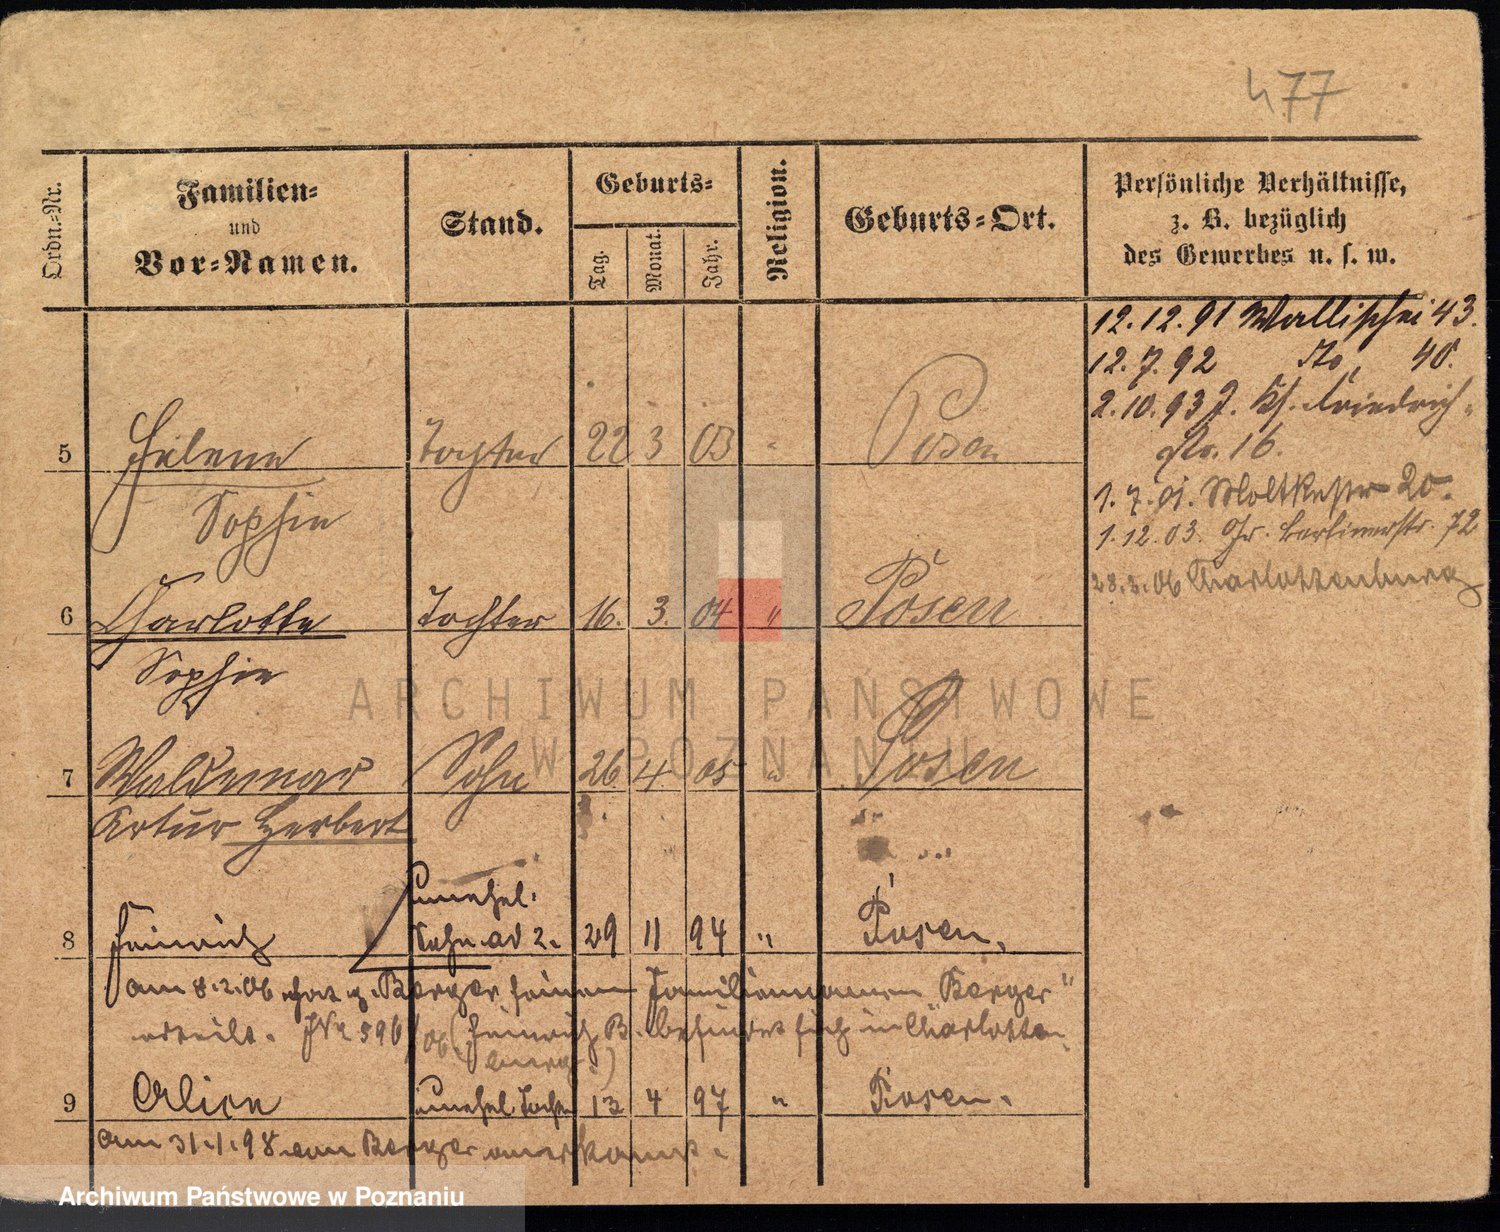 477
Ordn.-Nr.
Familien-
und
Vor-Namen.
Stand.
Geburts-
Tag.
Monat.
Jahr.
Religion.
Geburts-Ort.
Persönliche Verhältnisse,
z. B. bezüglich
des Gewerbes u. s. w.
12.12.91 Wallischei 43.
12.7.92 do 40.
2.10.93 Friedrich-
str. 16.
1.7.01. Moltkestr 20.
1.12.03. Gr. Berlinerstr. 72
28.3.06 Charlottenburg
5 Helene Tochter 22 3 03 " Posen
Sophie
6 Charlotte Tochter 16. 3. 04 " Posen
Sophie
7 Waldemar Sohn 26 4 05 " Posen
Artur Herbert
unehel.
8 Heinrich Sohn ad 2. 29 11 94 " Posen.
am 8.2.06 hat p. Berger seinen Familiennamen "Berger"
erteilt. JNr 590/06. (Heinrich B. befindet sich in Charlotten-
burg.)
9 Alice unehel. Tocht 13 4 97 " Posen.
am 31.1.98 von Berger anerkannt.
ARCHIWUM PAŃSTWOWE
W POZNANIU
Archiwum Państwowe w Poznaniu